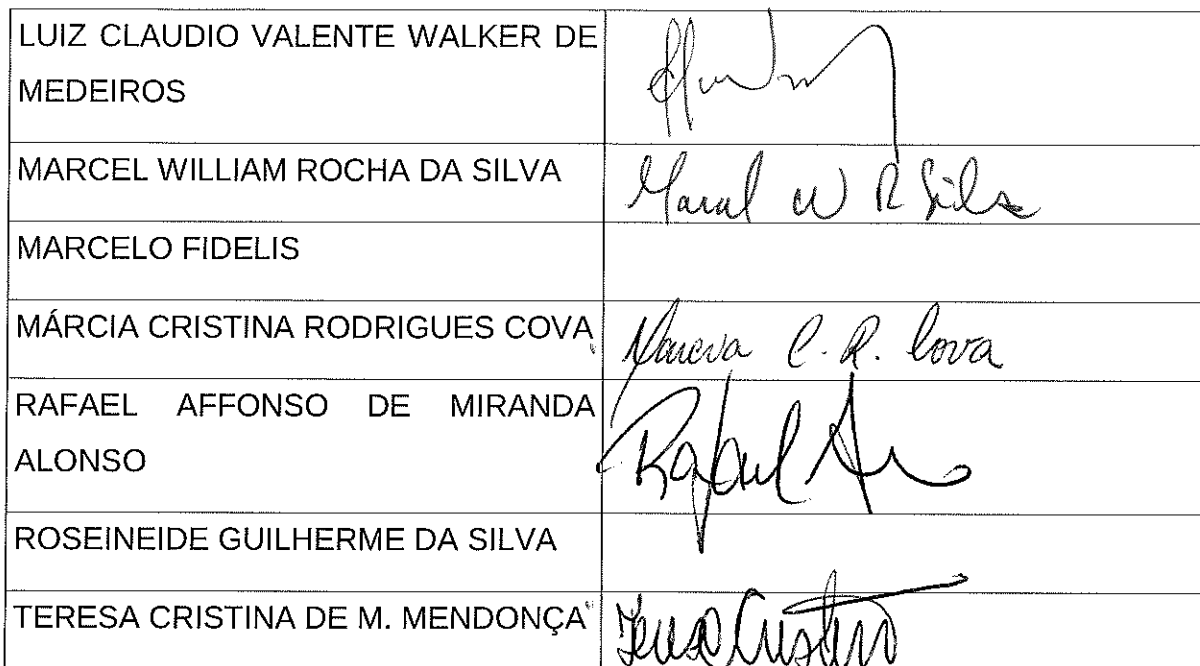 LUIZ CLAUDIO VALENTE WALKER DE
MEDEIROS
MARCEL WILLIAM ROCHA DA SILVA
Marcel W R Silva
MARCELO FIDELIS
MÁRCIA CRISTINA RODRIGUES COVA
Marcia C. R. Cova
RAFAEL AFFONSO DE MIRANDA
ALONSO
Rafael
ROSEINEIDE GUILHERME DA SILVA
TERESA CRISTINA DE M. MENDONÇA
Teresa Cristina